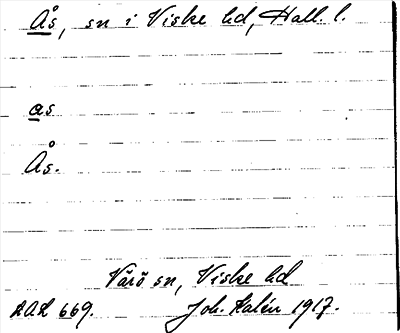 Ås, sn i Viske hd, Hall. l.
as
Ås.
Värö sn, Viske hd
LAL 669. Joh. Kalén 1917.